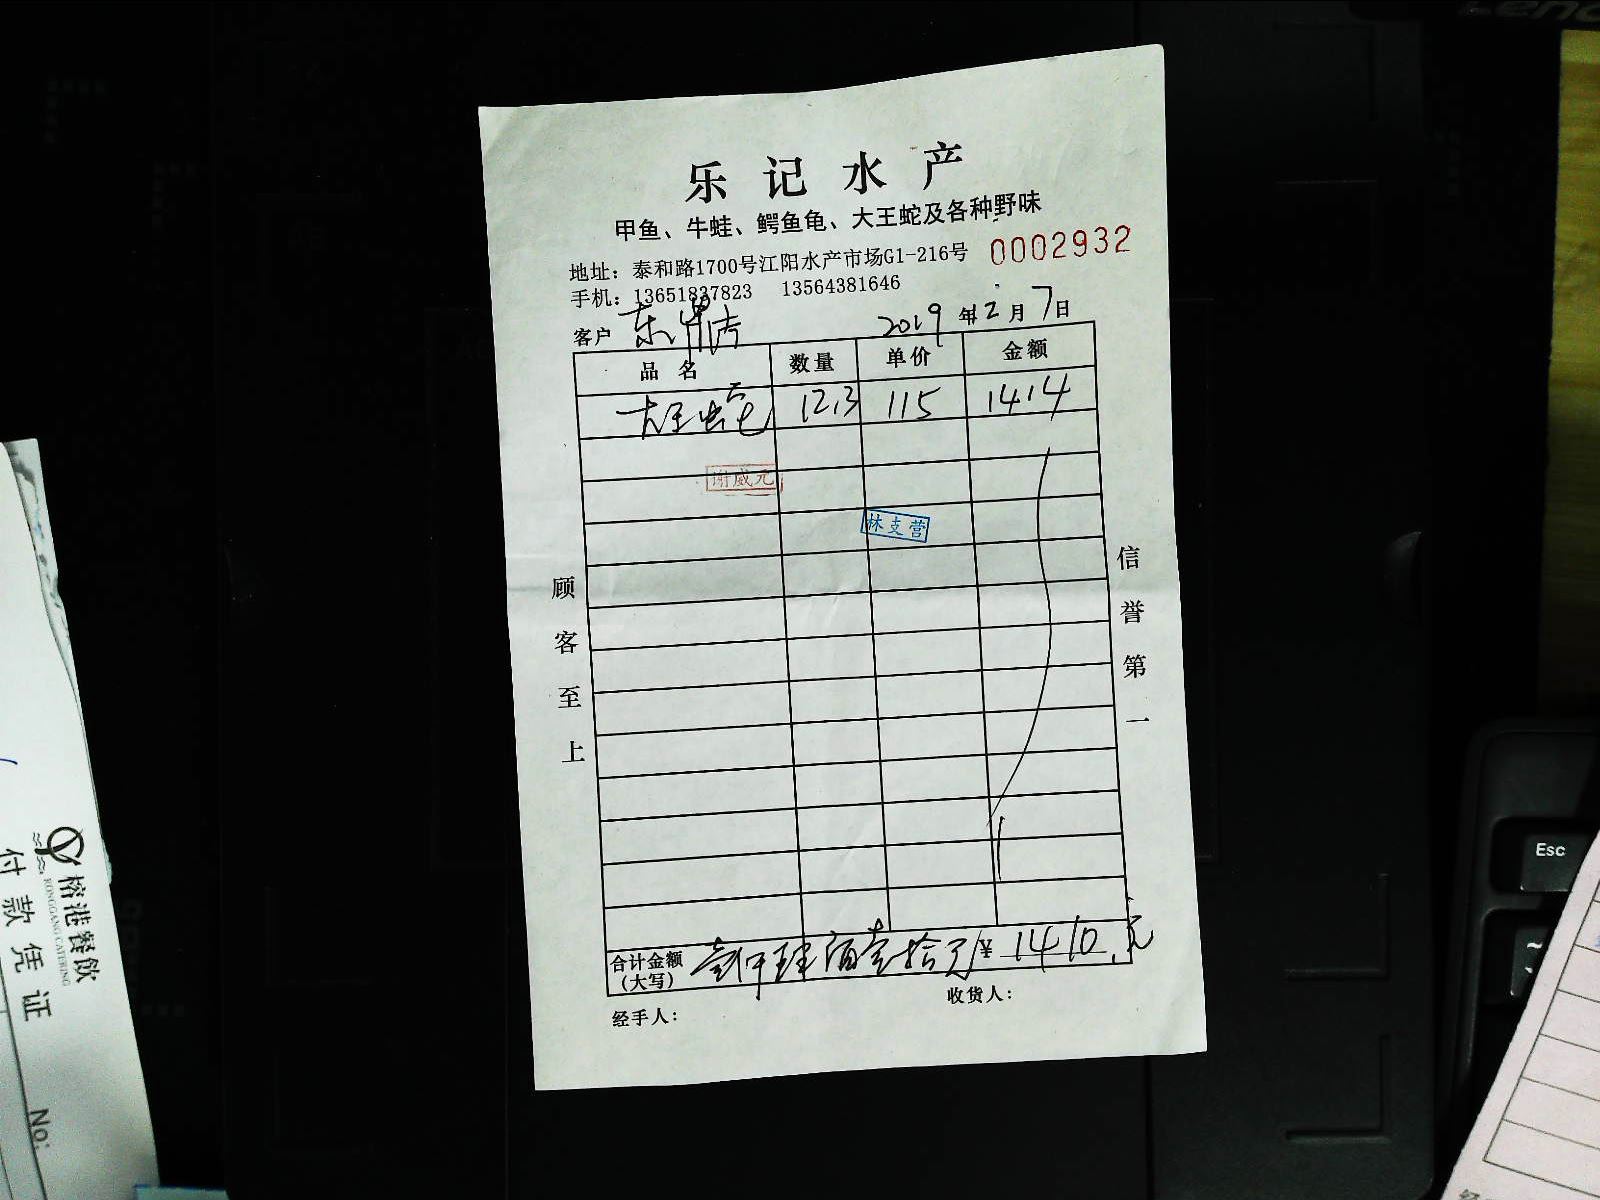 乐记水产
甲鱼、牛蛙、鳄鱼龟、大王蛇及各种野味
地址：泰和路1700号江阳水产市场G1-216号 0002932
手机：13651837823 13564381646
客户 2019年12月7日
品名 数量 单价 金额
大王蛇 12.3 115 1414
谢威元
林支营
顾客至上
信誉第一
合计金额（大写） 壹仟肆佰壹拾元 ¥ 1410.元
经手人：
收货人：
榕港餐飲
RONGGANG CATERING
付款凭证
No:
Esc
~
Lenovo